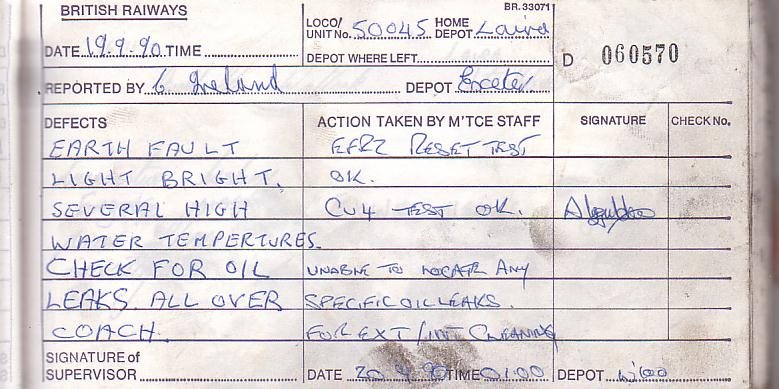 BRITISH RAILWAYS
BR. 33071
LOCO/ UNIT No. 50045 HOME DEPOT Laira
DATE 19.9.90 TIME
DEPOT WHERE LEFT
D 060570
REPORTED BY G Ireland DEPOT Exeter
DEFECTS ACTION TAKEN BY M'TCE STAFF SIGNATURE CHECK No.
EARTH FAULT EFR2 RESET TEST
LIGHT BRIGHT. OK.
SEVERAL HIGH CU4 TEST OK.
WATER TEMPERTURES.
CHECK FOR OIL UNABLE TO LOCATE ANY
LEAKS ALL OVER SPECIFIC OIL LEAKS.
COACH. FOR EXT/INT CLEANING
SIGNATURE of SUPERVISOR DATE 20 9 90 TIME 01:00 DEPOT